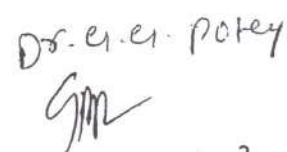 Dr. G. G. Potey